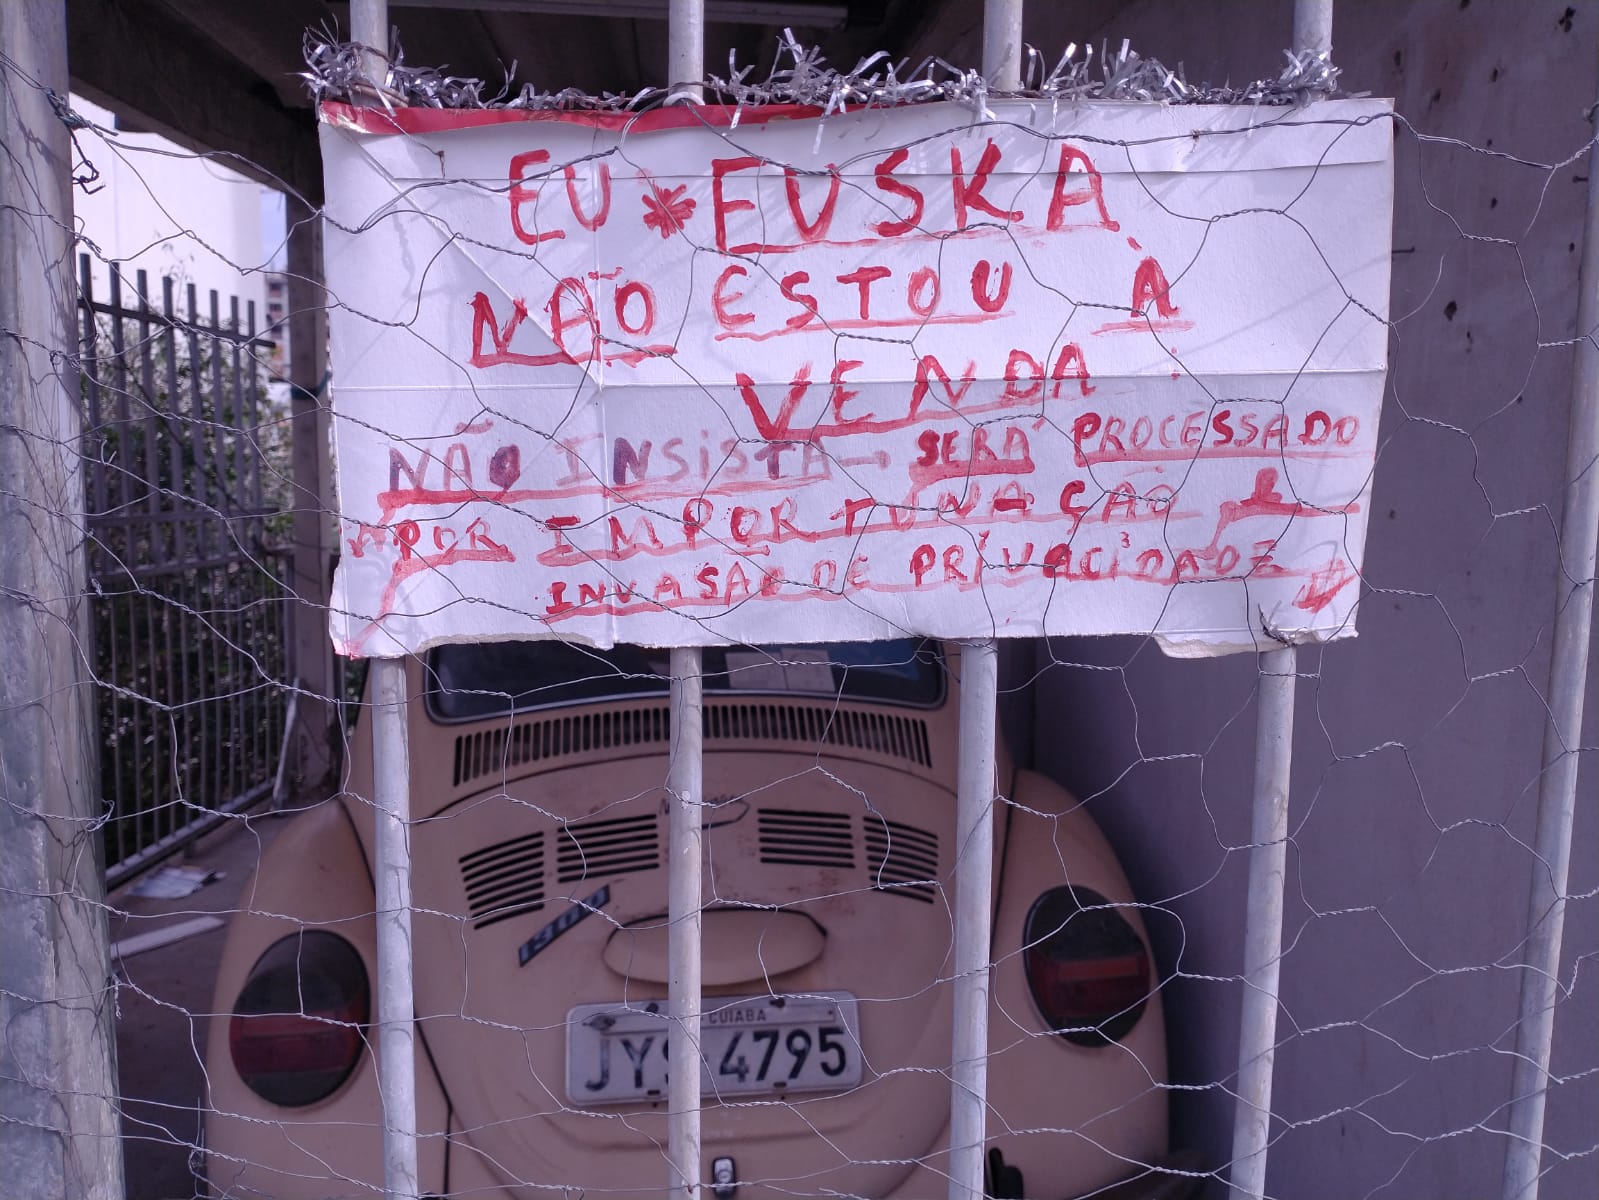 EU * FUSKA
NÃO ESTOU À
VENDA
NÃO INSISTA → SERÁ PROCESSADO
POR IMPORTUNAÇÃO E
INVASAO DE PRIVACIDADE
1300
CUIABA
JYS 4795